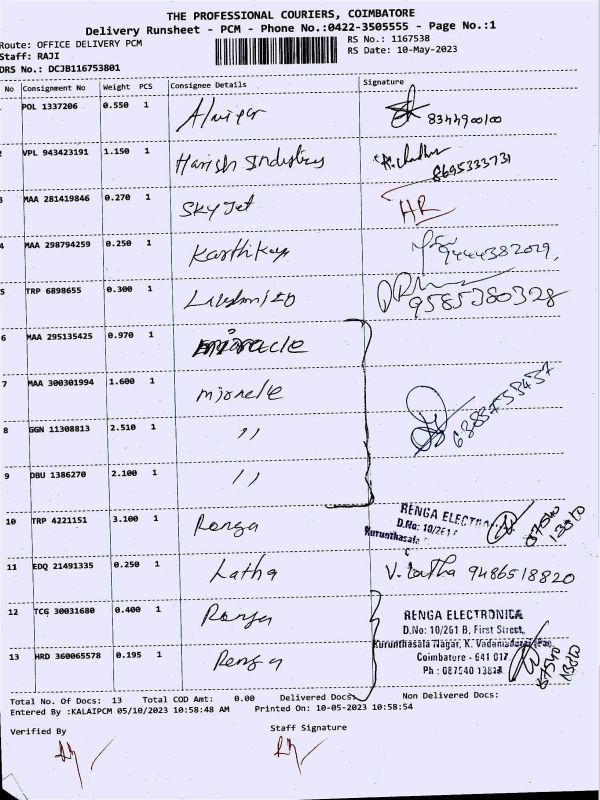 THE PROFESSIONAL COURIERS, COIMBATORE
Delivery Runsheet - PCM - Phone No.:0422-3505555 - Page No.:1
Route: OFFICE DELIVERY PCM RS No.: 1167538
Staff: RAJI RS Date: 10-May-2023
DRS No.: DCJB116753801
No Consignment No Weight PCS Consignee Details Signature
POL 1337206 0.550 1 8344900100
2 VPL 943423191 1.150 1 Harish Industry 8695333731
3 MAA 281419846 0.270 1 Sky Jet HR
4 MAA 298794259 0.250 1 9444382029,
5 TRP 6898655 0.300 1 9585380328
6 MAA 295135425 0.970 1 miracle
7 MAA 300301994 1.600 1
8 GGN 11308813 2.510 1 ,,
9 DBU 1386270 2.100 1 ,,
10 TRP 4221151 3.100 1 Renga RENGA ELECTR
D.No: 10/261
Kurunthasala
C
11 EDQ 21491335 0.250 1 Latha V. Latha 9486518820
12 TCG 30031680 0.400 1 Renga RENGA ELECTRONICA
D.No: 10/261 B, First Street,
Kurunthasala Nagar, K.
13 HRD 360065578 0.195 1 Renga Coimbatore - 641 017
Ph : 087540 13813
Total No. Of Docs: 13 Total COD Amt: 0.00 Delivered Docs: Non Delivered Docs:
Entered By :KALAIPCM 05/10/2023 10:58:48 AM Printed On: 10-05-2023 10:58:54
Verified By Staff Signature